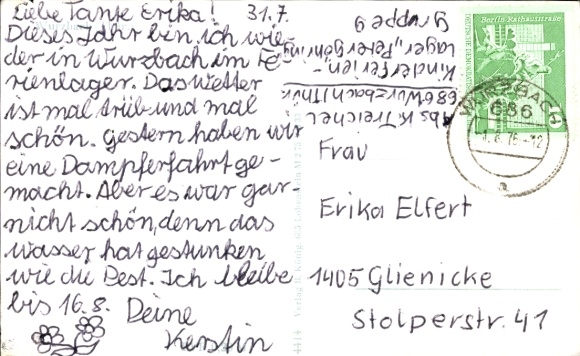 Liebe Tante Erika! 31.7.
Dieses Jahr bin ich wie-
der in Wurzbach im Fe-
rienlager. Das Wetter
ist mal trüb und mal
schön. Gestern haben wir
eine Dampferfahrt ge-
macht. Aber es war gar-
nicht schön, denn das
Wasser hat gestunken
wie die Pest. Ich bleibe
bis 16.8. Deine
Kerstin
Abs. K. Treichel
686 Wurzbach/Thür.
Kinderferien-
lager "Peter Göring"
Gruppe 9
Berlin, Rathausstraße
10
WURZBACH
686
1.8.76-12
a
Frau
Erika Elfert
1405 Glienicke
Stolperstr. 41
4414